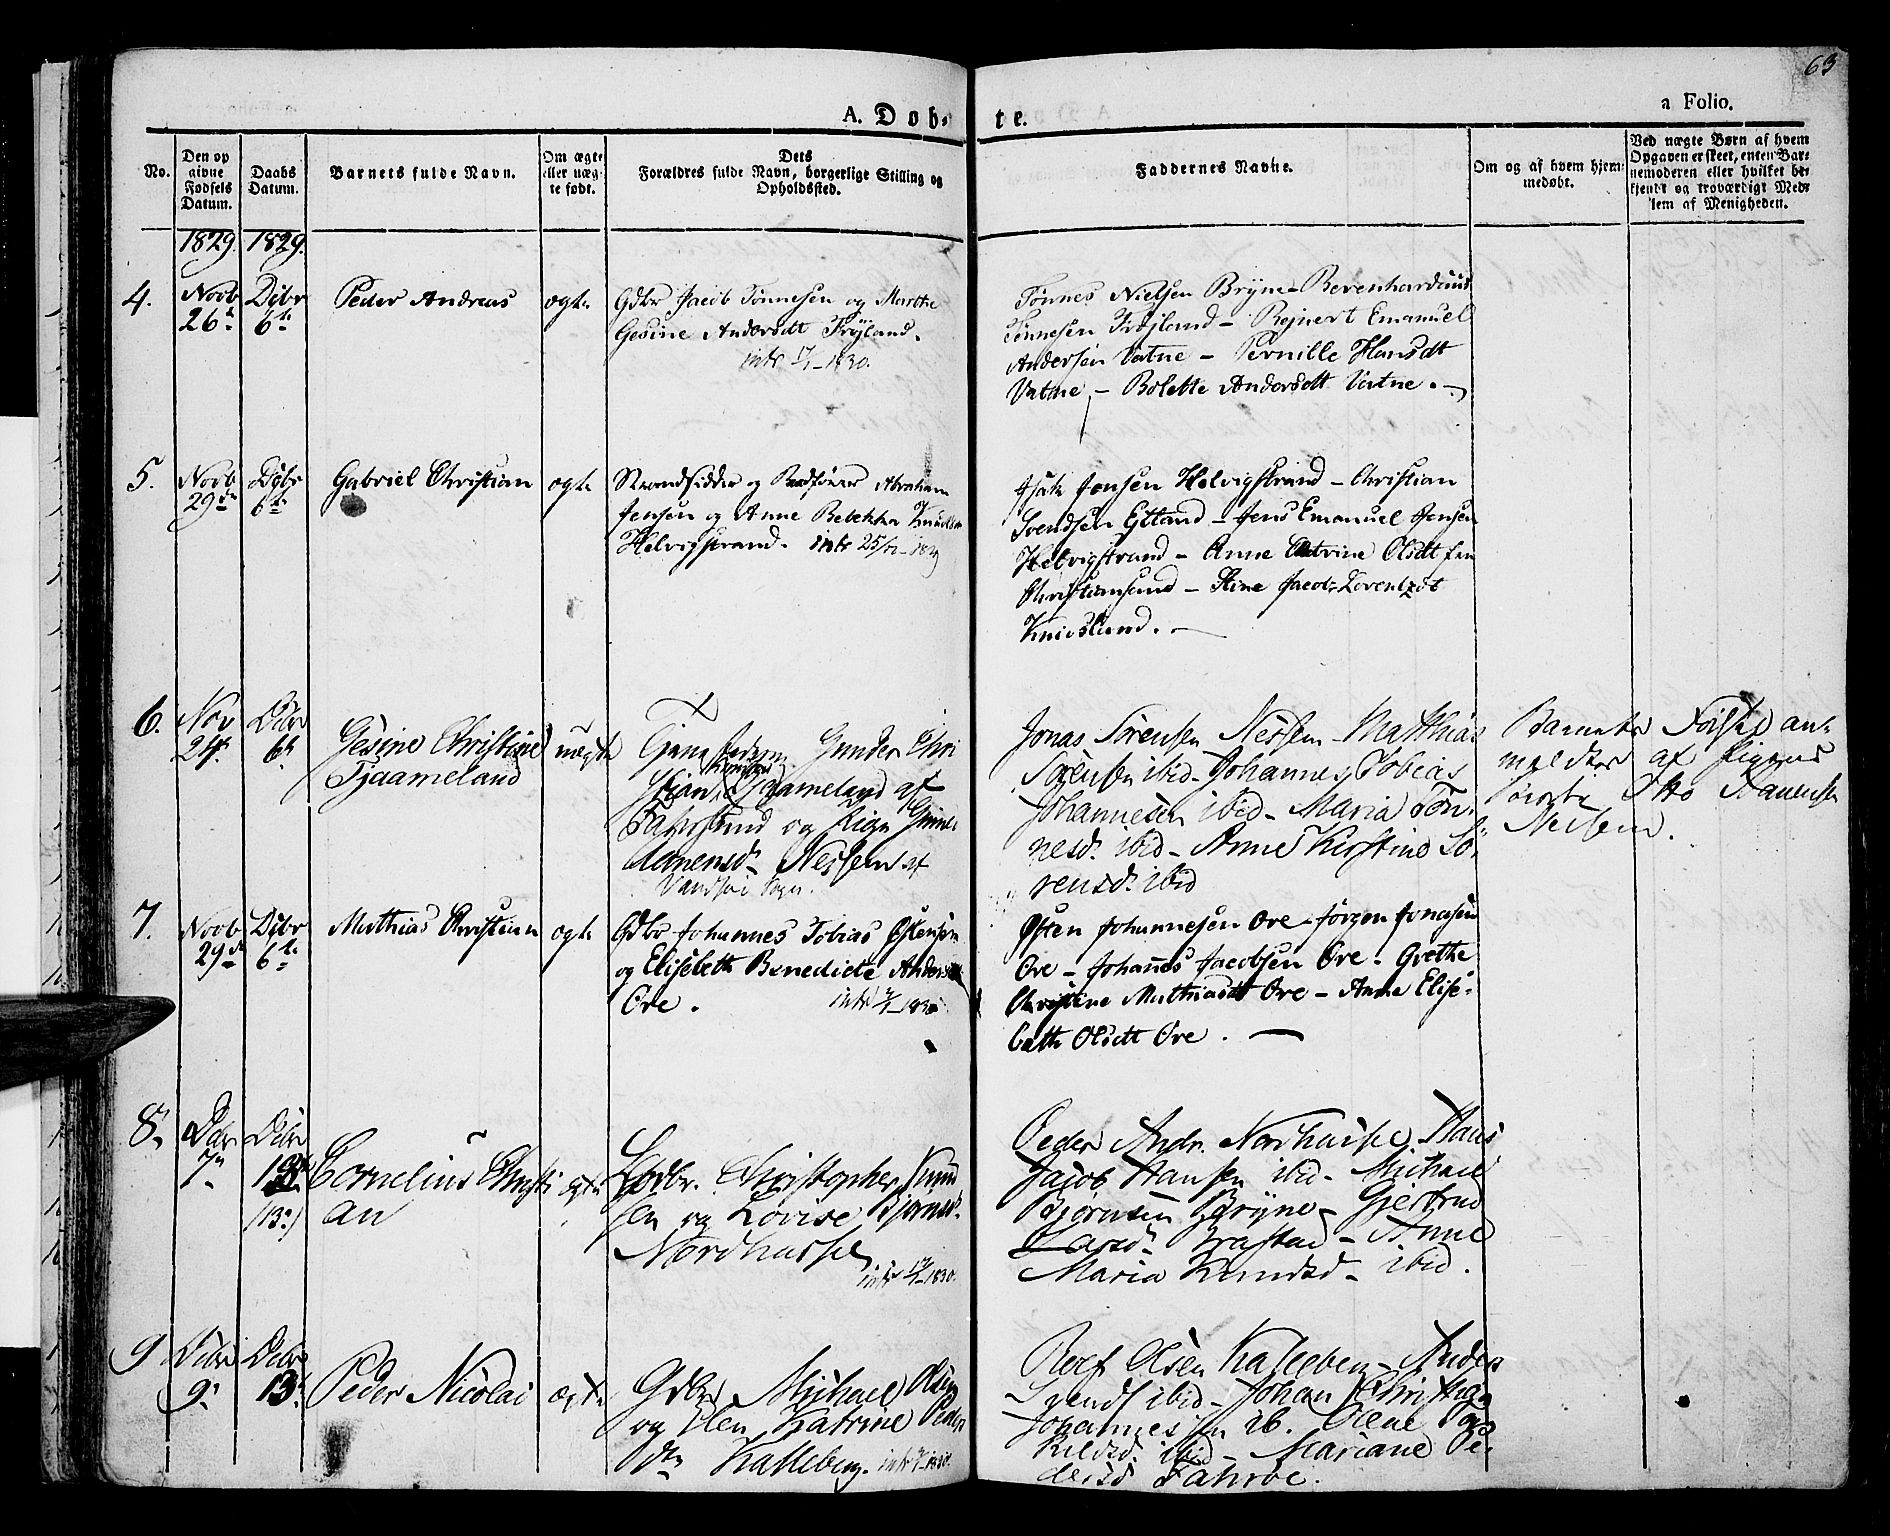 63
A. Døb-
te.
a Folio.
No.
Den op
givne
Fødsels
Datum.
Daabs
Datum.
Barnets fulde Navn.
Om ægte
eller uæg-
te født.
Dets
Forældres fulde Navn, borgerlige Stilling og
Opholdssted.
Faddernes Navne.
Om og af hvem hjem-
medøbt.
Ved uægte Børn af hvem
Opgaven er skeet, enten Bar-
nemoderen eller hvilket be-
kjendt og troværdigt Med-
lem af Menigheden.
1829. 1829.
4.
Novb
26
Dzbr
6te
Peder Andreas
ægte
Gdbr Jacob Tønnesen og Marthe
Gesine Andersdt Frøyland.
intr 17/1-1830.
Tønnes Nielsen Bryne - Berenhardinus
Tønnesen Frøyland - Rejnert Emanuel
Andersen Vatne - Pernille Hansdt
Vatne - Bolette Andersdt Vatne.
5.
Novb
29de
Dzbr
6te
Gabriel Christian
ægte
Strandsidder og Abraham
Jensen og Anne Rebekka Knudsd
Helvigstrand. intr 25/12-1829
Isak Jensen Helvigstrand - Christian
Svendsen Egland - Jens Emanuel Jensen
Helvigstrand - Anne Catrine Olsdt fra
Christiansand - Stine Jacob Lorentzdt
Knivsland.
6.
Nov
24
Dcbr
6
Gesine Christine
Tjaameland
uægte
Gunder Chri
stian Tjaameland af
og Pige Gunild
Aanensd. Nessem af
Vandsøe Sogn.
Jonas Sørensen Nessem - Matthias
Sørensen ibid - Johannes Tobias
Johannesen ibid - Maria Tøn-
nesd. ibid - Anne Kirstine Sö-
rensd. ibid
Barnets Fødsel an-
meldtes af Pigens
Otto Daniensen
Neisem.
7.
Novb
29de
Dzbr
6te
Mathias Christian
ægte
Gdbr Johannes Tobias Østensen
og Elisebeth Benedicte Andersd
Øre.
intr 1830
Østen Johannesen Øre - Jørgen Jonasen
Øre - Johannes Jacobsen Øre - Grethe
Christine Mathiasdt Øre - Anne Elise-
beth Olsdt Øre.
8.
Dcbr
7
Dcbr
13
(13)
Cornelius Christi
an
ægte
Gdbr. Christopher Knud
sen og Lovise Bjørnsd.
Nordhassel
intr 17/1-1830.
Peder Andr. Nordhassel - Hans
Jacob Hansen ibid - Michael
Bjørnsen Bryne - Gjertrud
Larsd. Brastad - Anne
Maria Knudsd - ibid.
9
Dcbr
9
Dcbr
13
Peder Nicolai
ægte
Gdbr Michael Olsen
og Elen Katrine Peder
dtr Kalleberg. intr 1830.
Roef Olsen Kalleberg - Anders
Svends ibid - Johan Christian
Johannessen ib. Olene Ta-
rildsd. ibid - Mariane Pe-
dersd Fahrøe.